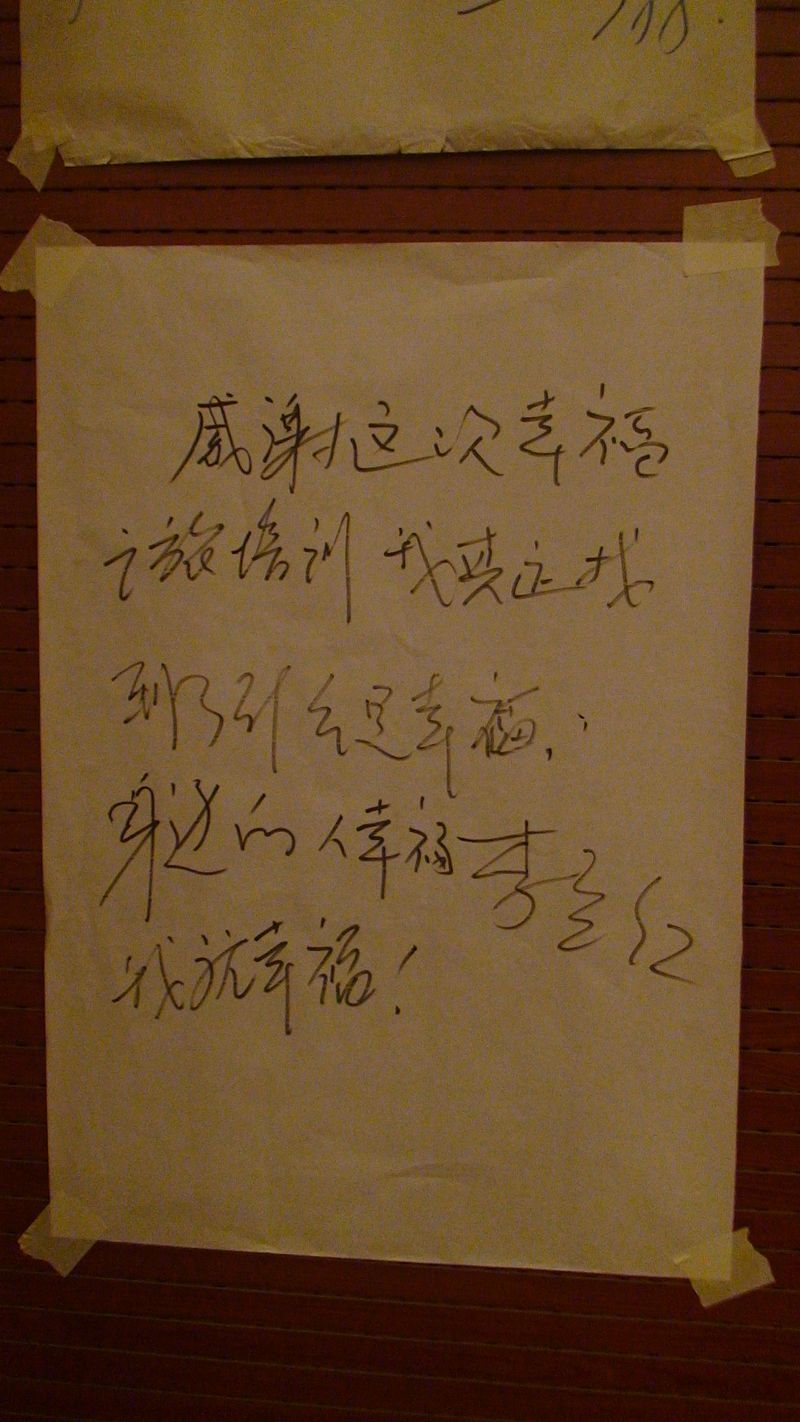 感谢这次幸福
之旅培训 我真正找
到了什么是幸福,
身边的人幸福
我就幸福!
李红